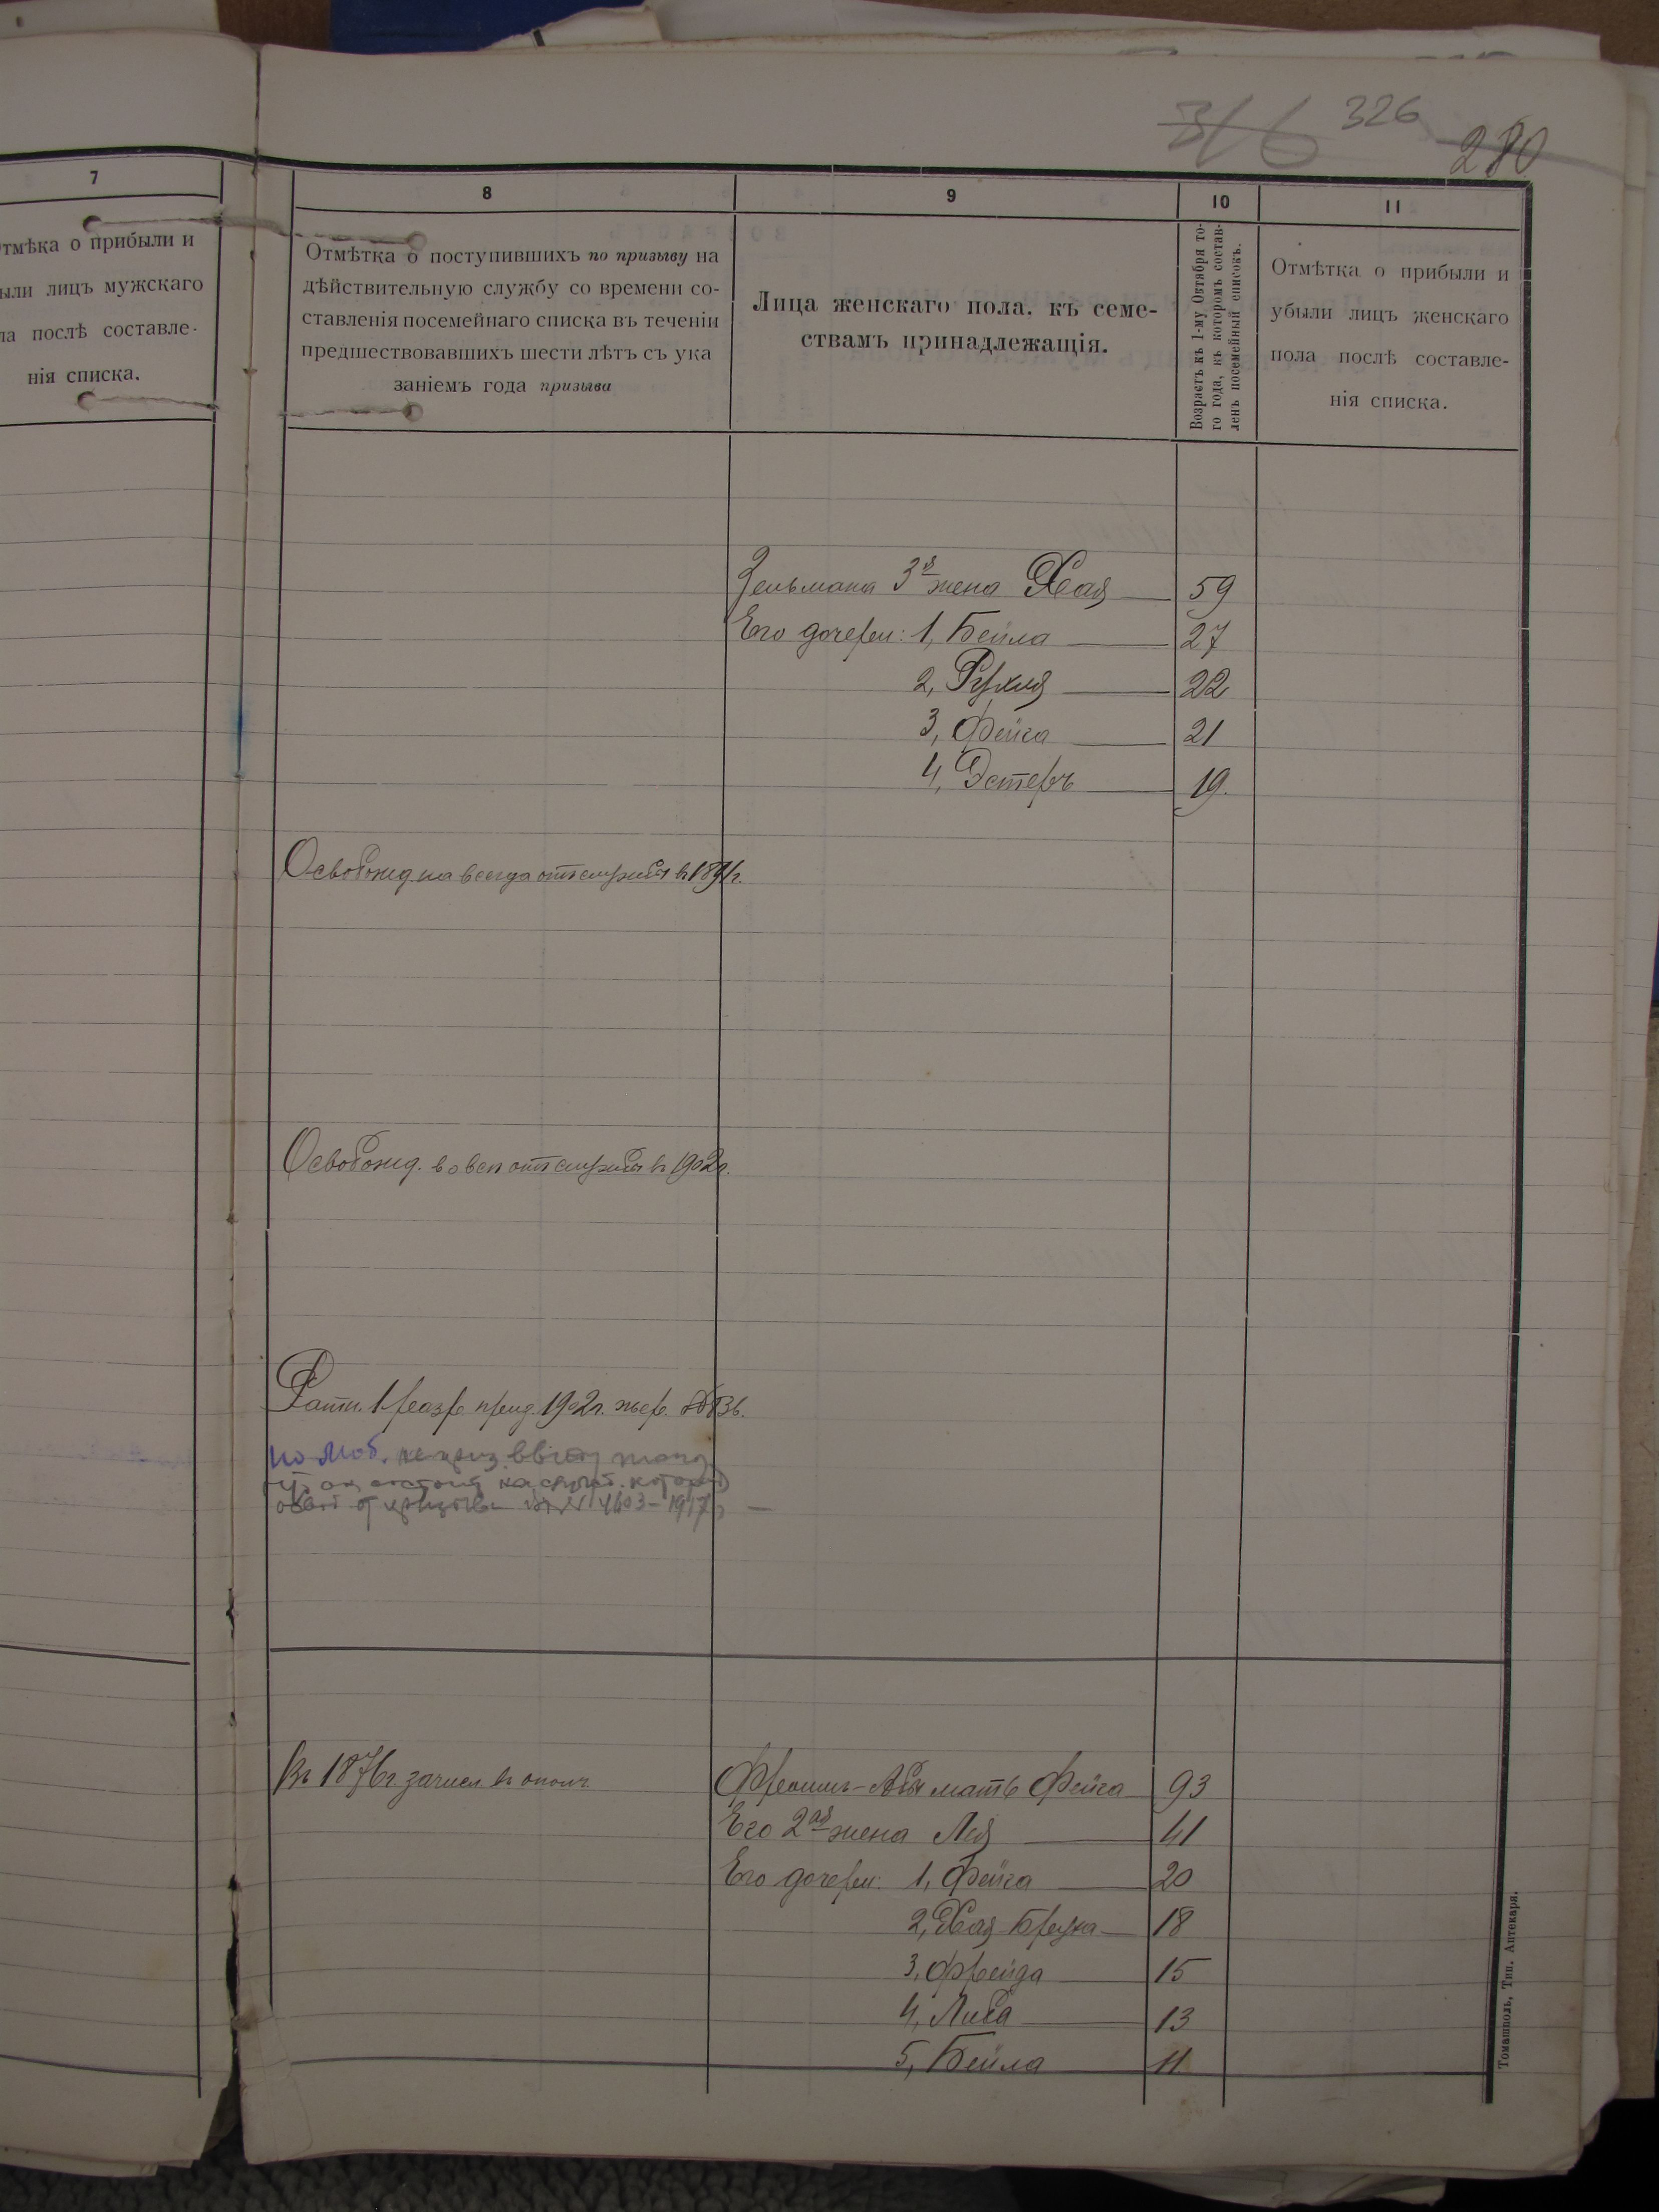 316 326 280
7
Отмѣка о прибыли и
были лицъ мужскаго
ла послѣ составле-
нія списка.
8
Отмѣтка о поступившихъ по призыву на
дѣйствительную службу со времени со-
ставленія посемейнаго списка въ теченіи
предшествовавшихъ шести лѣтъ съ ука
заніемъ года призыва
9
Лица женскаго пола, къ семе-
ствамъ принадлежащія.
10
Возрастъ къ 1-му Октября то-
го года, къ которомъ состав-
ленъ посемейный списокъ.
11
Отмѣтка о прибыли и
убыли лицъ женскаго
пола послѣ составле-
нія списка.
Зельмана 3я жена Хая 59
Его дочери: 1, Бейла 27
2, Рухля 22
3, Фейга 21
4, Эстеръ 19.
Освобожд на всегда отъ службы в 1891г.
Освобожд. вовсе отъ службы в 1902г.
Ратн. 1 разр. приз. 1902г. жер. №
по моб. не приз. ввиду
на служб.
1917
Въ 1876г. зачисл. в ополч.
Фроимъ-Абы мать Фейга 93
Его 2ая жена Лея 41
Его дочери: 1, Фейга 20
2, Хая Бруха 18
3, Фрейда 15
4, Либа 13
5, Бейла 11.
Томашполь, Тип. Аптекаря.